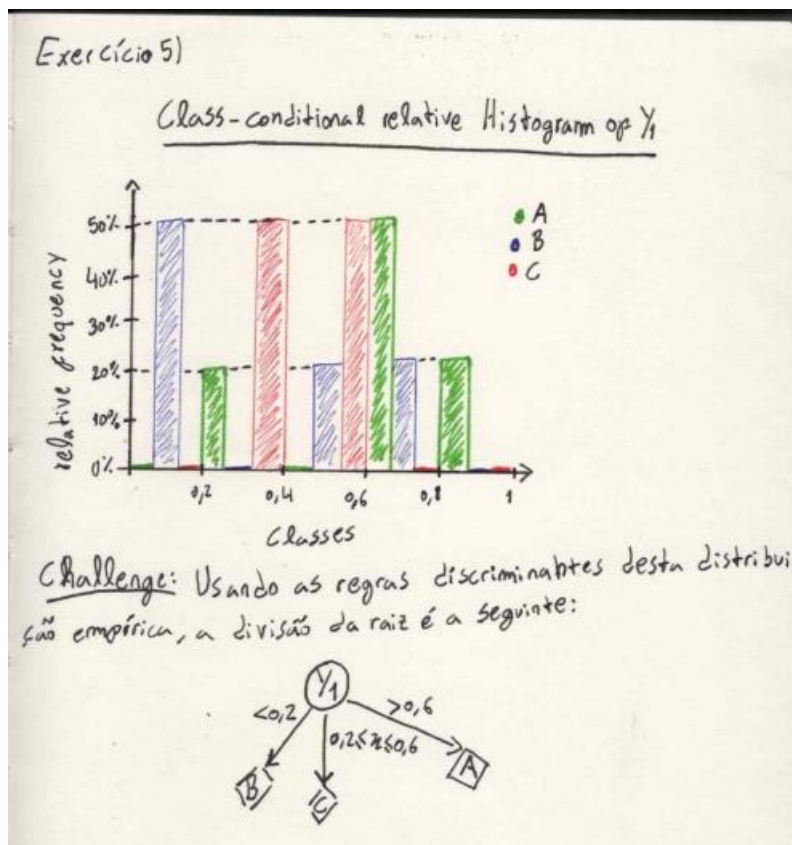 Exercício 5)
Class-conditional relative Histogram of Y₁
50%
40%
30%
20%
10%
0%
relative frequency
A
B
C
0,2
0,4
0,6
0,8
1
Classes
Challenge: Usando as regras discriminantes desta distribui
ção empírica, a divisão da raiz é a seguinte:
Y₁
<0,2
0,2≤x≤0,6
>0,6
B
C
A